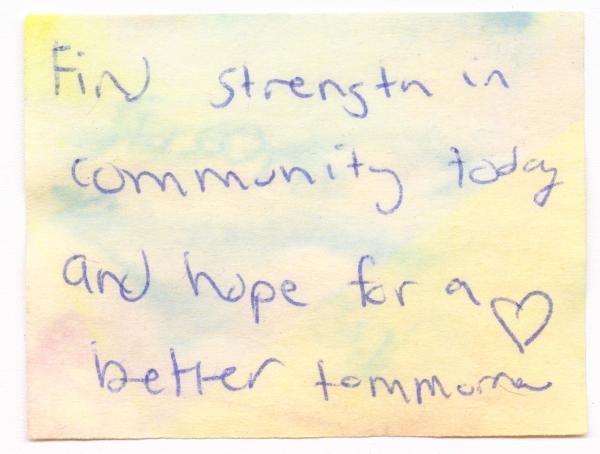 Find strength in
community today
and hope for a ♡
better tommorrow